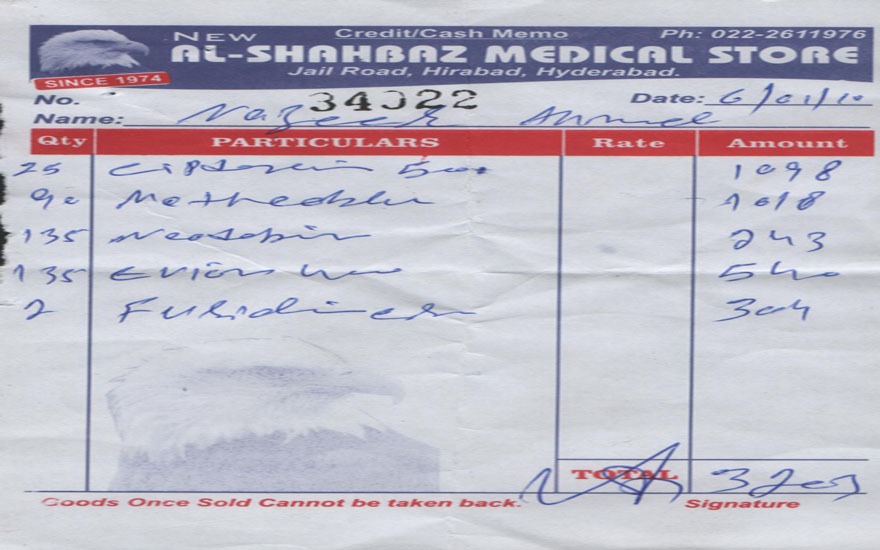 NEW Credit/Cash Memo Ph: 022-2611976
AL-SHAHBAZ MEDICAL STORE
SINCE 1974 Jail Road, Hirabad, Hyderabad.
No. 34022 Date: 6/01/10
Name: Nazeer Ahmed
Qty PARTICULARS Rate Amount
25 500 1098
90 1018
135 243
135 Evion 540
2 Fusidin 304
TOTAL 3203
Goods Once Sold Cannot be taken back. Signature